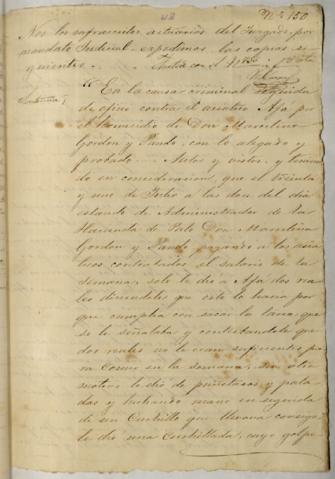 42
Nº 150
Nos los infrascritos actuarios del Juzgado, por
mandato Judicial expedimos las copias si-
guientes.
Sentencia;
"En la causa criminal seguida
de oficio contra el asiatico Afá, por
el homicidio de Don Marcelino
Gordon y Pando, con lo alegado y
probado. Autos y vistos, y tenien
do en consideracion, que el treinta
y uno de Julio a las dos del dia
estando de Administrador de la
Hacienda de Palo Don Marcelino
Gordon y Pando pagando a los asia
ticos contratados el salario de la
semana, solo le dio a Afá dos rea
les diciendole que esto lo hacia por
que cumplia con sacar la tarea que
se le señalaba y contestandole que
dos reales no le eran suficientes pa
ra Comer en la semana, sin otro
motivo le dio de puñetasos y pata
das y hechando mano en seguida
de un Cuchillo que llevaba consigo
le dio una Cuchillada, cuyo golpe